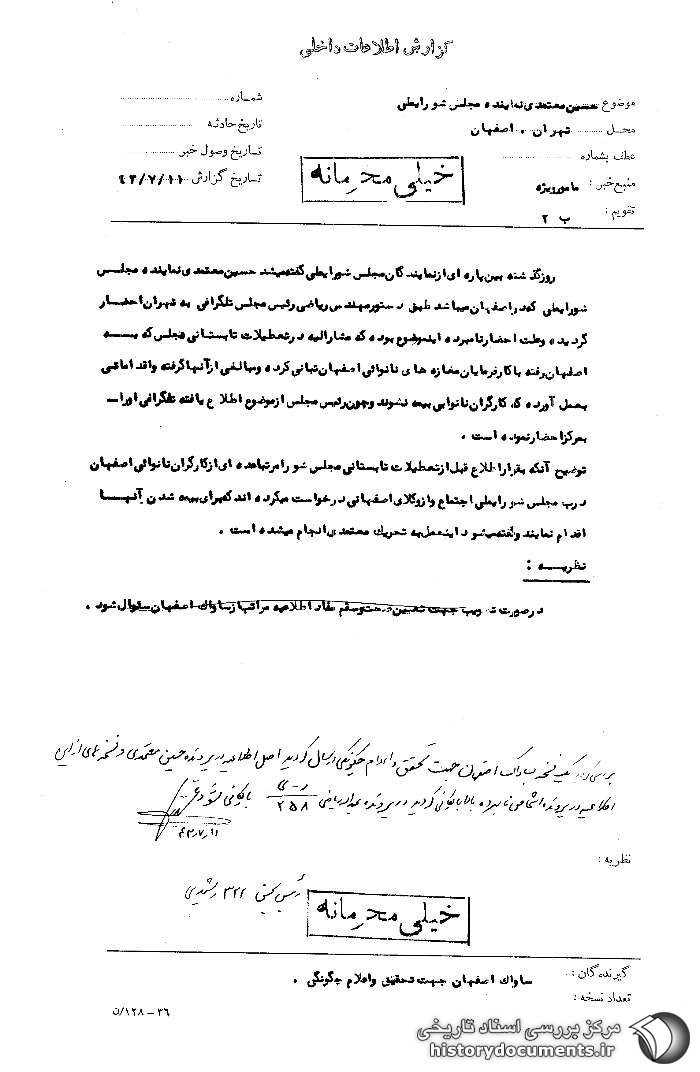 گزارش اطلاعات داخلی
موضوع حسین معتمدی نماینده مجلس شورایملی
محل تهران ـ اصفهان
عطف بشماره
منبع خبر : مامورویژه
تقویم : ب ۲
شماره
تاریخ حادثه
تاریخ وصول خبر
تاریخ گزارش ۴۳/۷/۱۱
خیلی محرمانه
روزگذشته بین پاره ای از نمایندگان مجلس شورایملی گفته میشد حسین معتمدی نماینده مجلس
شورایملی که در اصفهان میباشد طبق دستور مهندس ریاضی رئیس مجلس تلگرافی به تهران احضار
گردیده وعلت احضار نامبرده اینموضوع بوده که مشارالیه در تعطیلات تابستانی مجلس که به
اصفهان رفته با کارفرمایان مغازه های نانوائی اصفهان تبانی کرده ومبالغی از آنها گرفته واقداماتی
بعمل آورده که کارگران نانوایی بیمه نشوند وچون رئیس مجلس از موضوع اطلاع یافته تلگرافی اورا
بمرکز احضار نموده است .
توضیح آنکه بقرار اطلاع قبل از تعطیلات تابستانی مجلس شورا مرتبا عده ای از کارگران نانوائی اصفهان
درب مجلس شورایملی اجتماع واز وکلای اصفهانی درخواست میکرده اند که برای بیمه شدن آنها
اقدام نمایند وگفته میشود اینعمل به تحریک معتمدی انجام میشده است .
نظریه :
درصورت تصویب جهت تعیین صحت وسقم مفاد اطلاعیه مراتب از ساواک اصفهان سئوال شود .
بررسی گردید یک نسخه به ساواک اصفهان جهت تحقیق و اعلام چگونگی ارسال گردید اصل اطلاعیه در پرونده حسین معتمدی و نسخه های از این
اطلاعیه در پرونده اشخاص نامبرده بالا بایگانی گردید در پرونده عبداله ریاضی ر-ی ۲۵۸ بایگانی شود
۴۳/۷/۱۱
نظریه :
رئیس بخش ۳۲۲ رشیدی
خیلی محرمانه
گیرندگان : ساواک اصفهان جهت تحقیق واعلام چگونگی .
تعداد نسخه :
۳۶ – ۱۲۸/ن
مرکز بررسی اسناد تاریخی
historydocuments.ir